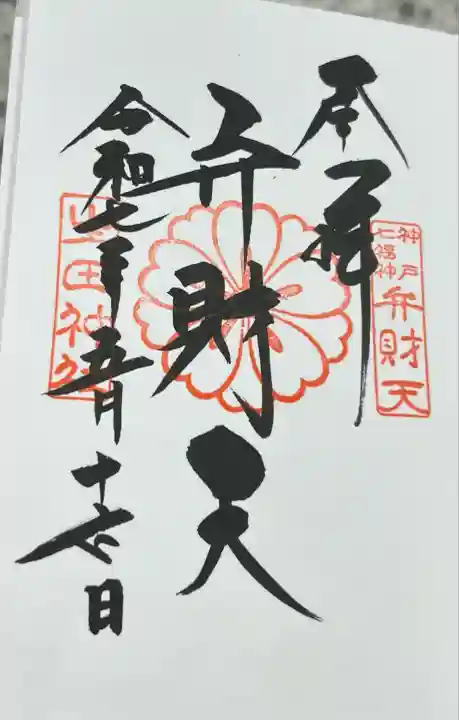 奉拝
神戸
七福神
弁財天
弁財天
令和七年五月十七日
長田神社